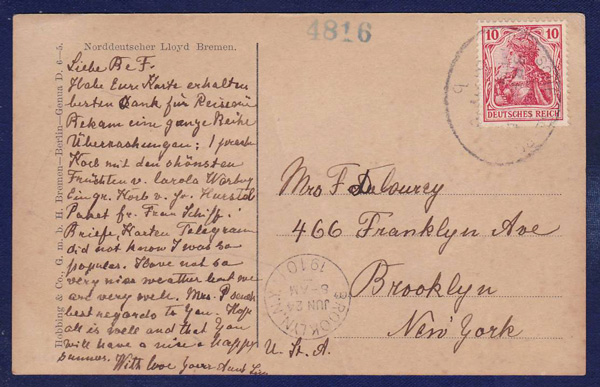 4816
Norddeutscher Lloyd Bremen.
Robbing & Co., G. m. b. H. Bremen–Berlin–Genua D. 6–5.
10 10
DEUTSCHES REICH
Liebe B e F.
Habe Eure Karte erhalten
besten Dank für
Bekam eine ganze Reihe
Überraschungen; 1
Korb mit den schönsten
Früchten v. Carola Warburg
Ein gr. Korb v.
Paket fr. Frau Schiff.
Briefe, Karten Telegram
did not know I was so
popular. Have not so
very nice weather but we
are very well. Mrs. P sends
best regards to You. Hope
all is well and that You
will have a nice & happy
summer. With love Your Aunt
Mrs F
466 Franklyn Ave
Brooklyn
New York
U. S. A.
BROOKLYN, N.Y.
JUN 24
8-AM
1910